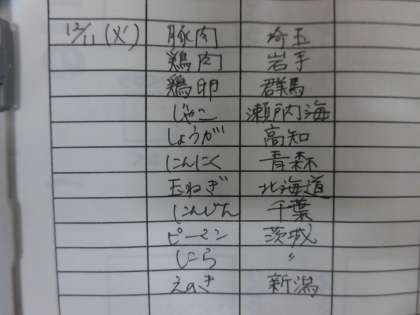 12/11(火) 豚肉 埼玉
鶏肉 岩手
鶏卵 群馬
じゃこ 瀬戸内海
しょうが 高知
にんにく 青森
玉ねぎ 北海道
にんじん 千葉
ピーマン 茨城
にら 〃
えのき 新潟